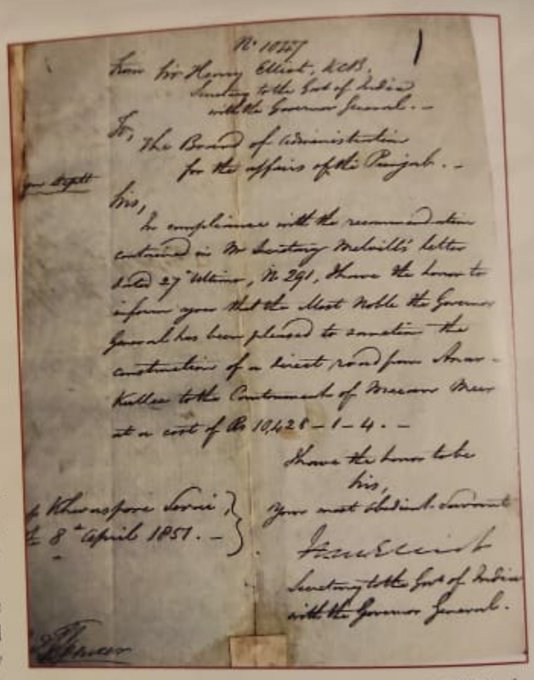 No 1047
From Sir Henry Elliot, KCB,
Secretary to the Govt of India
with the Governor General. -
To,
The Board of Administration
for the affairs of the Punjab. -
Deptt
Sirs,
In compliance with the recommendation
contained in Mr Secretary Melvill's letter
dated 27 Ultimo, No 291, I have the honor to
inform you that the Most Noble the Governor
General has been pleased to sanction the
construction of a direct road from Anar-
Kullee to the Cantonment of Meean Meer
at a cost of Rs 10,428-1-4. -
I have the honor to be
Sirs,
Your most obedient Servant
Secretary to the Govt of India
with the Governor General.
Khawaspore Serai,
8th April 1851. -